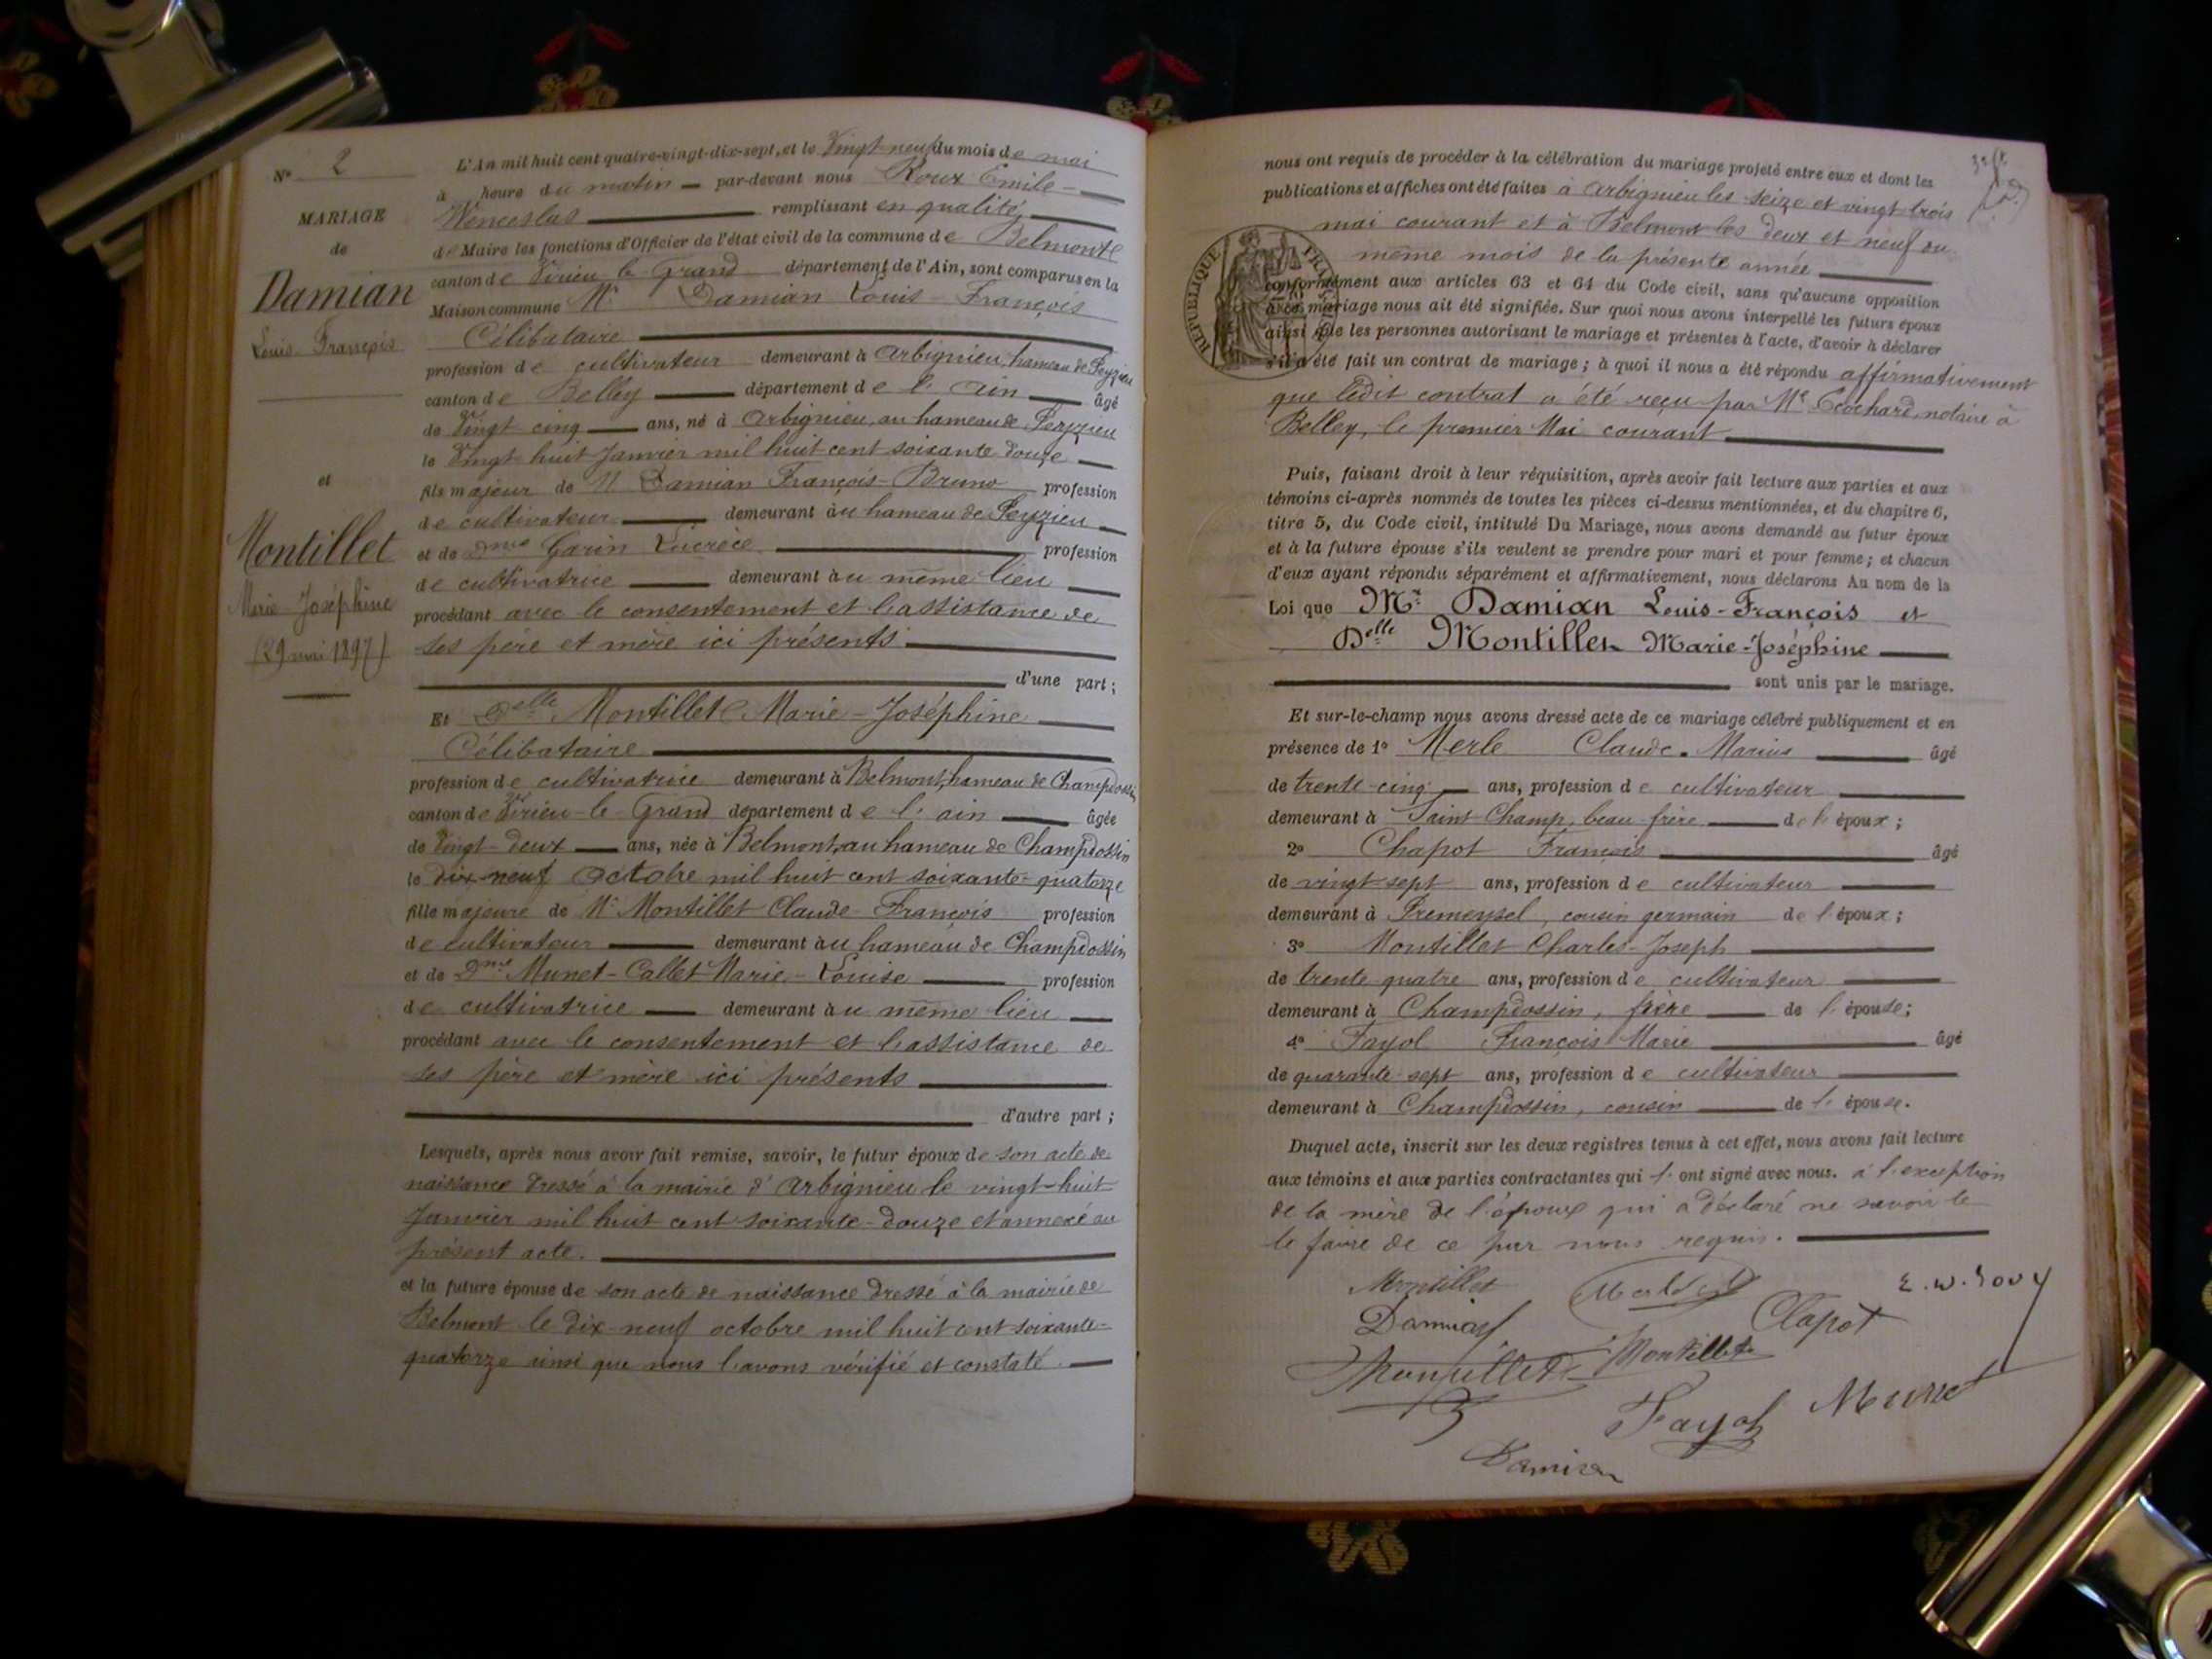 N° 2
MARIAGE
de
Damian
Louis-François
et
Montillet
Marie-Joséphine
(29 mai 1897)
L'An mil huit cent quatre-vingt-dix-sept, et le Vingt-neuf du mois de mai
à heure du matin par-devant nous Roux Emile-
Wenceslas remplissant en qualité
de Maire les fonctions d'Officier de l'état civil de la commune de Belmont
canton de Virieu le Grand département de l'Ain, sont comparus en la
Maison commune Mr Damian Louis-François
Célibataire
profession de cultivateur demeurant à Arbignieu, hameau de Peyzieu
canton de Belley département de l'Ain âgé
de Vingt cinq ans, né à Arbignieu, au hameau de Peyzieu
le Vingt huit Janvier mil huit cent soixante douze
fils majeur de M Damian François-Bruno profession
de cultivateur demeurant au hameau de Peyzieu
et de Dme Garin Lucrèce profession
de cultivatrice demeurant au même lieu
procédant avec le consentement et l'assistance de
ses père et mère ici présents
d'une part;
Et Delle Montillet Marie-Joséphine
Célibataire
profession de cultivatrice demeurant à Belmont, hameau de Champdossin
canton de Virieu-le-Grand département de l'ain âgée
de Vingt-deux ans, née à Belmont, au hameau de Champdossin
le dix-neuf Octobre mil huit cent soixante-quatorze
fille majeure de Mr Montillet Claude-François profession
de cultivateur demeurant au hameau de Champdossin
et de Dme Munet-Callet Marie-Louise profession
de cultivatrice demeurant au même lieu
procédant avec le consentement et l'assistance de
ses père et mère ici présents
d'autre part;
Lesquels, après nous avoir fait remise, savoir, le futur époux de son acte de
naissance dressé à la mairie d'Arbignieu le vingt-huit
Janvier mil huit cent soixante-douze et annexé au
présent acte.
et la future épouse de son acte de naissance dressé à la mairie de
Belmont le dix-neuf octobre mil huit cent soixante-
quatorze ainsi que nous l'avons vérifié et constaté.
nous ont requis de procéder à la célébration du mariage projeté entre eux et dont les
publications et affiches ont été faites à Arbignieu les seize et vingt trois
mai courant et à Belmont les deux et neuf du
même mois de la présente année
RÉPUBLIQUE FRANÇAISE
conformément aux articles 63 et 64 du Code civil, sans qu'aucune opposition
à ce mariage nous ait été signifiée. Sur quoi nous avons interpellé les futurs époux
ainsi que les personnes autorisant le mariage et présentes à l'acte, d'avoir à déclarer
s'il a été fait un contrat de mariage; à quoi il nous a été répondu affirmativement
que ledit contrat a été reçu par Me Ecochard, notaire à
Belley, le premier Mai courant
Puis, faisant droit à leur réquisition, après avoir fait lecture aux parties et aux
témoins ci-après nommés de toutes les pièces ci-dessus mentionnées, et du chapitre 6,
titre 5, du Code civil, intitulé Du Mariage, nous avons demandé au futur époux
et à la future épouse s'ils veulent se prendre pour mari et pour femme; et chacun
d'eux ayant répondu séparément et affirmativement, nous déclarons Au nom de la
Loi que Mr Damian Louis-François et
Delle Montillet Marie-Joséphine
sont unis par le mariage.
Et sur-le-champ nous avons dressé acte de ce mariage célébré publiquement et en
présence de 1° Merle Claude-Marius âgé
de trente-cinq ans, profession de cultivateur
demeurant à Saint Champ, beau-frère de l'époux;
2° Chapot François âgé
de vingt-sept ans, profession de cultivateur
demeurant à Premeysel, cousin germain de l'époux;
3° Montillet Charles-Joseph
de trente quatre ans, profession de cultivateur
demeurant à Champdossin, frère de l'épouse;
4° Fayol François Marie âgé
de quarante-sept ans, profession de cultivateur
demeurant à Champdossin, cousin de l'épouse.
Duquel acte, inscrit sur les deux registres tenus à cet effet, nous avons fait lecture
aux témoins et aux parties contractantes qui l'ont signé avec nous. à l'exception
de la mère de l'époux qui a déclaré ne savoir le
le faire de ce par nous requis.
Montillet
Damian
Chapot
Montillet
Montillet
Fayol
Munet
Damian